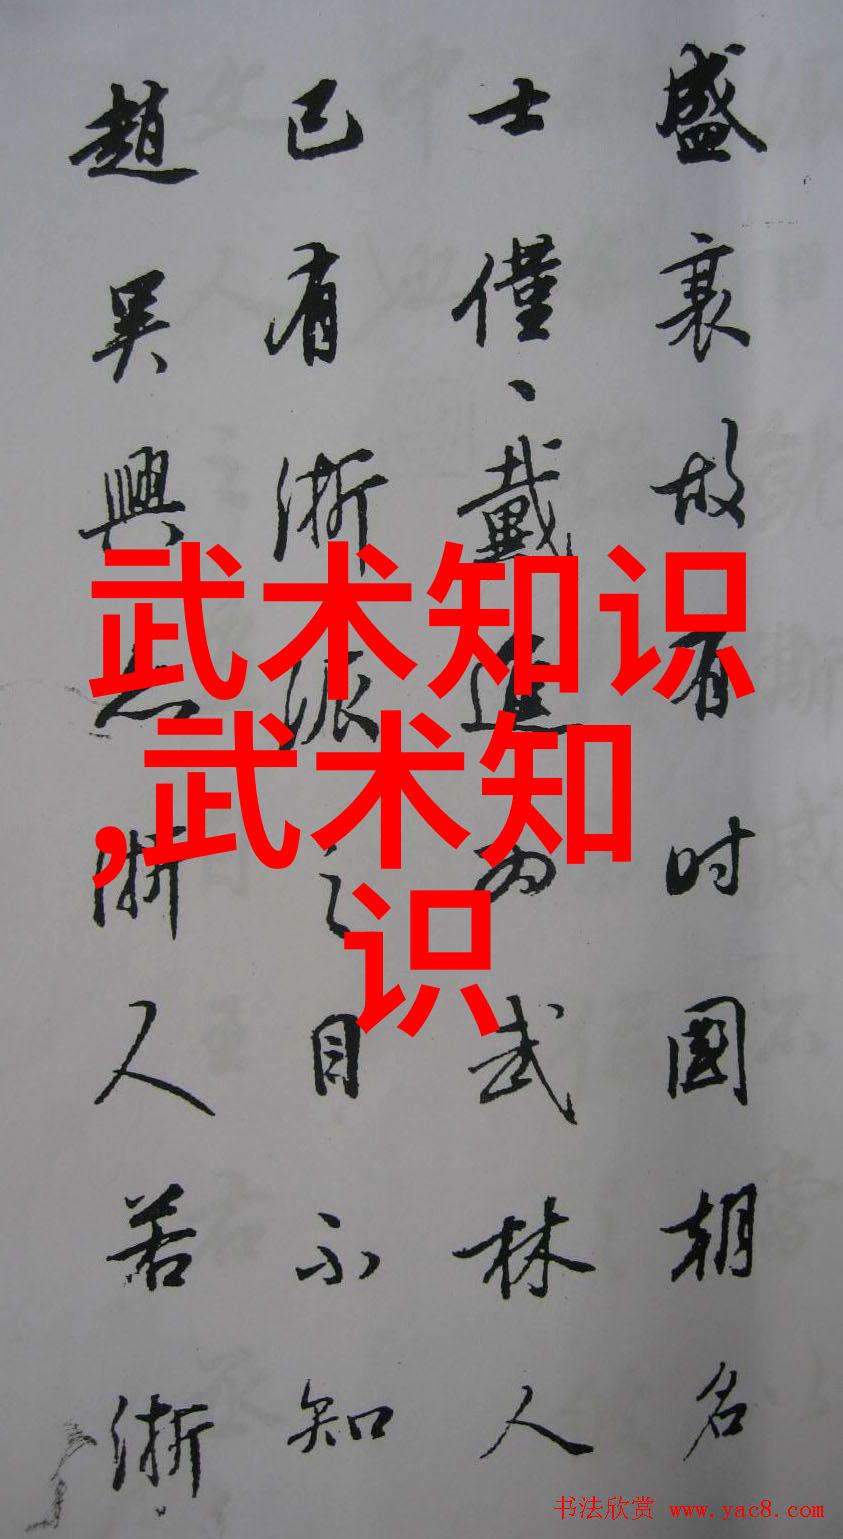 盛衰故有时國朝名
士僅、戴進为武林人
已有浙派之目不知
趙吴興亦浙人若浙
武术知识
,武术知
识
书法欣赏 www.yac8.com